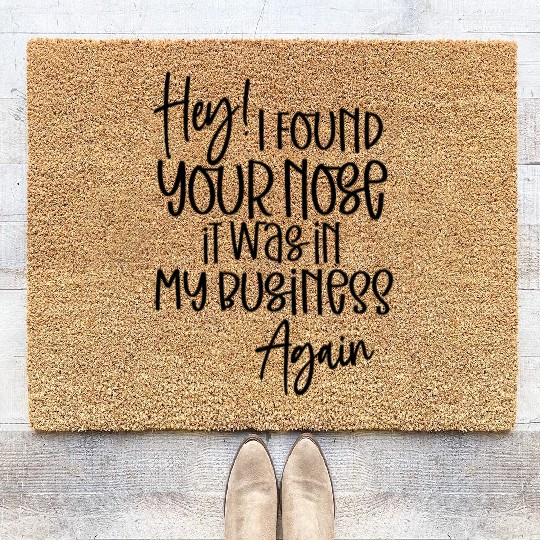 Hey! I FOUND
YOUR NOSE
IT WAS IN
MY BUSINESS
Again